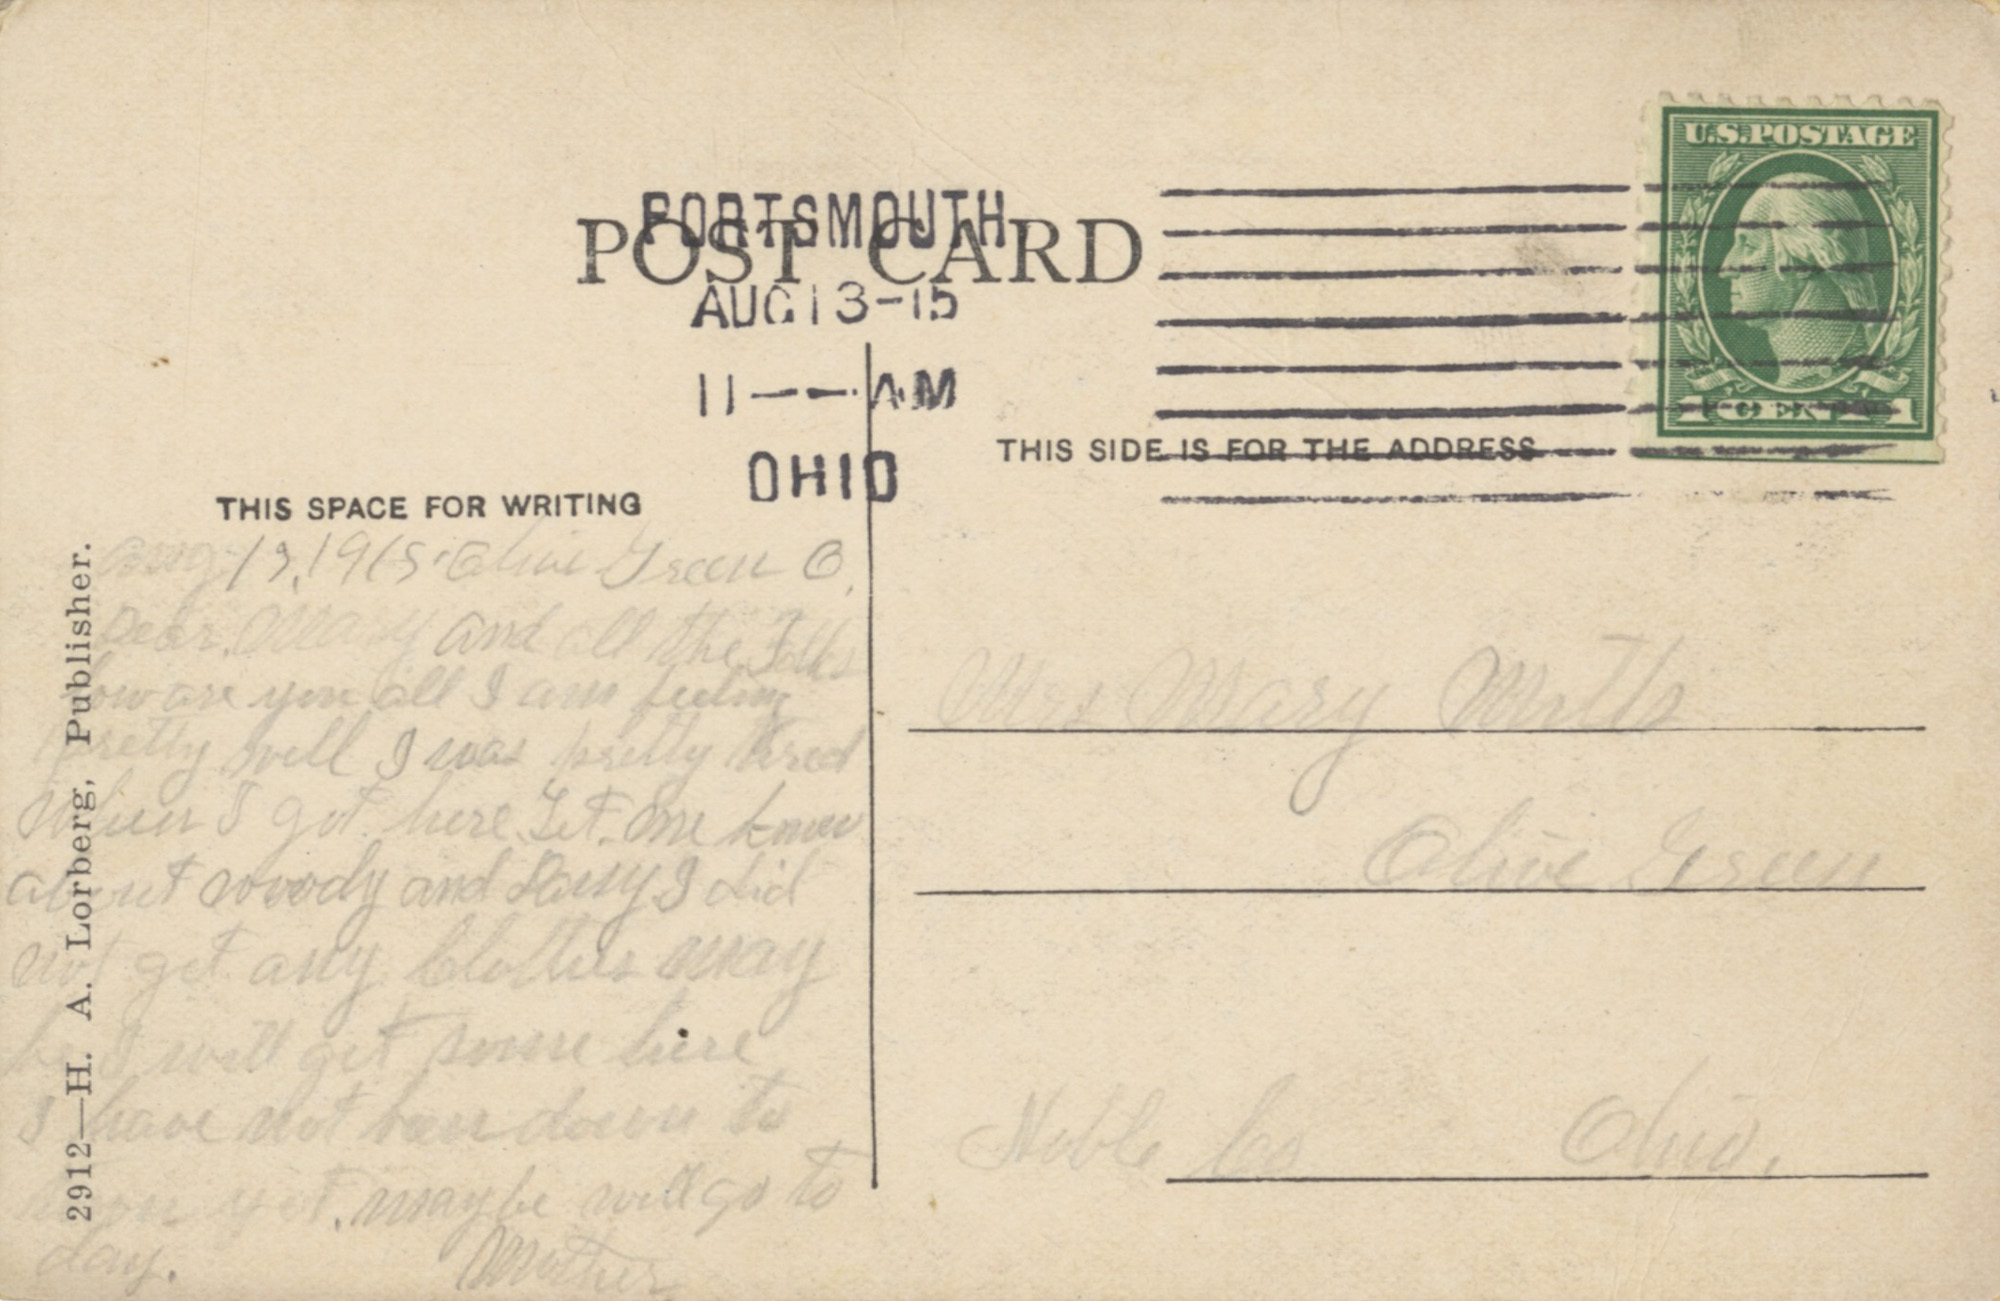 U.S. POSTAGE
1 CENT 1
PORTSMOUTH
POST CARD
AUG 13-15
11 — — AM
OHIO
THIS SIDE IS FOR THE ADDRESS
THIS SPACE FOR WRITING
2912—H. A. Lorberg, Publisher.
Aug 13, 1915. Olive Green O.
Dear Mary and all the Folks
how are you all I am feeling
pretty well I was pretty tired
When I got here Let me know
about woody and I did
not get any Clothes may
be I will get some here
I have not been down to
town yet. maybe will go to
day. Mother
Mrs Mary
Olive Green
Noble Co Ohio.